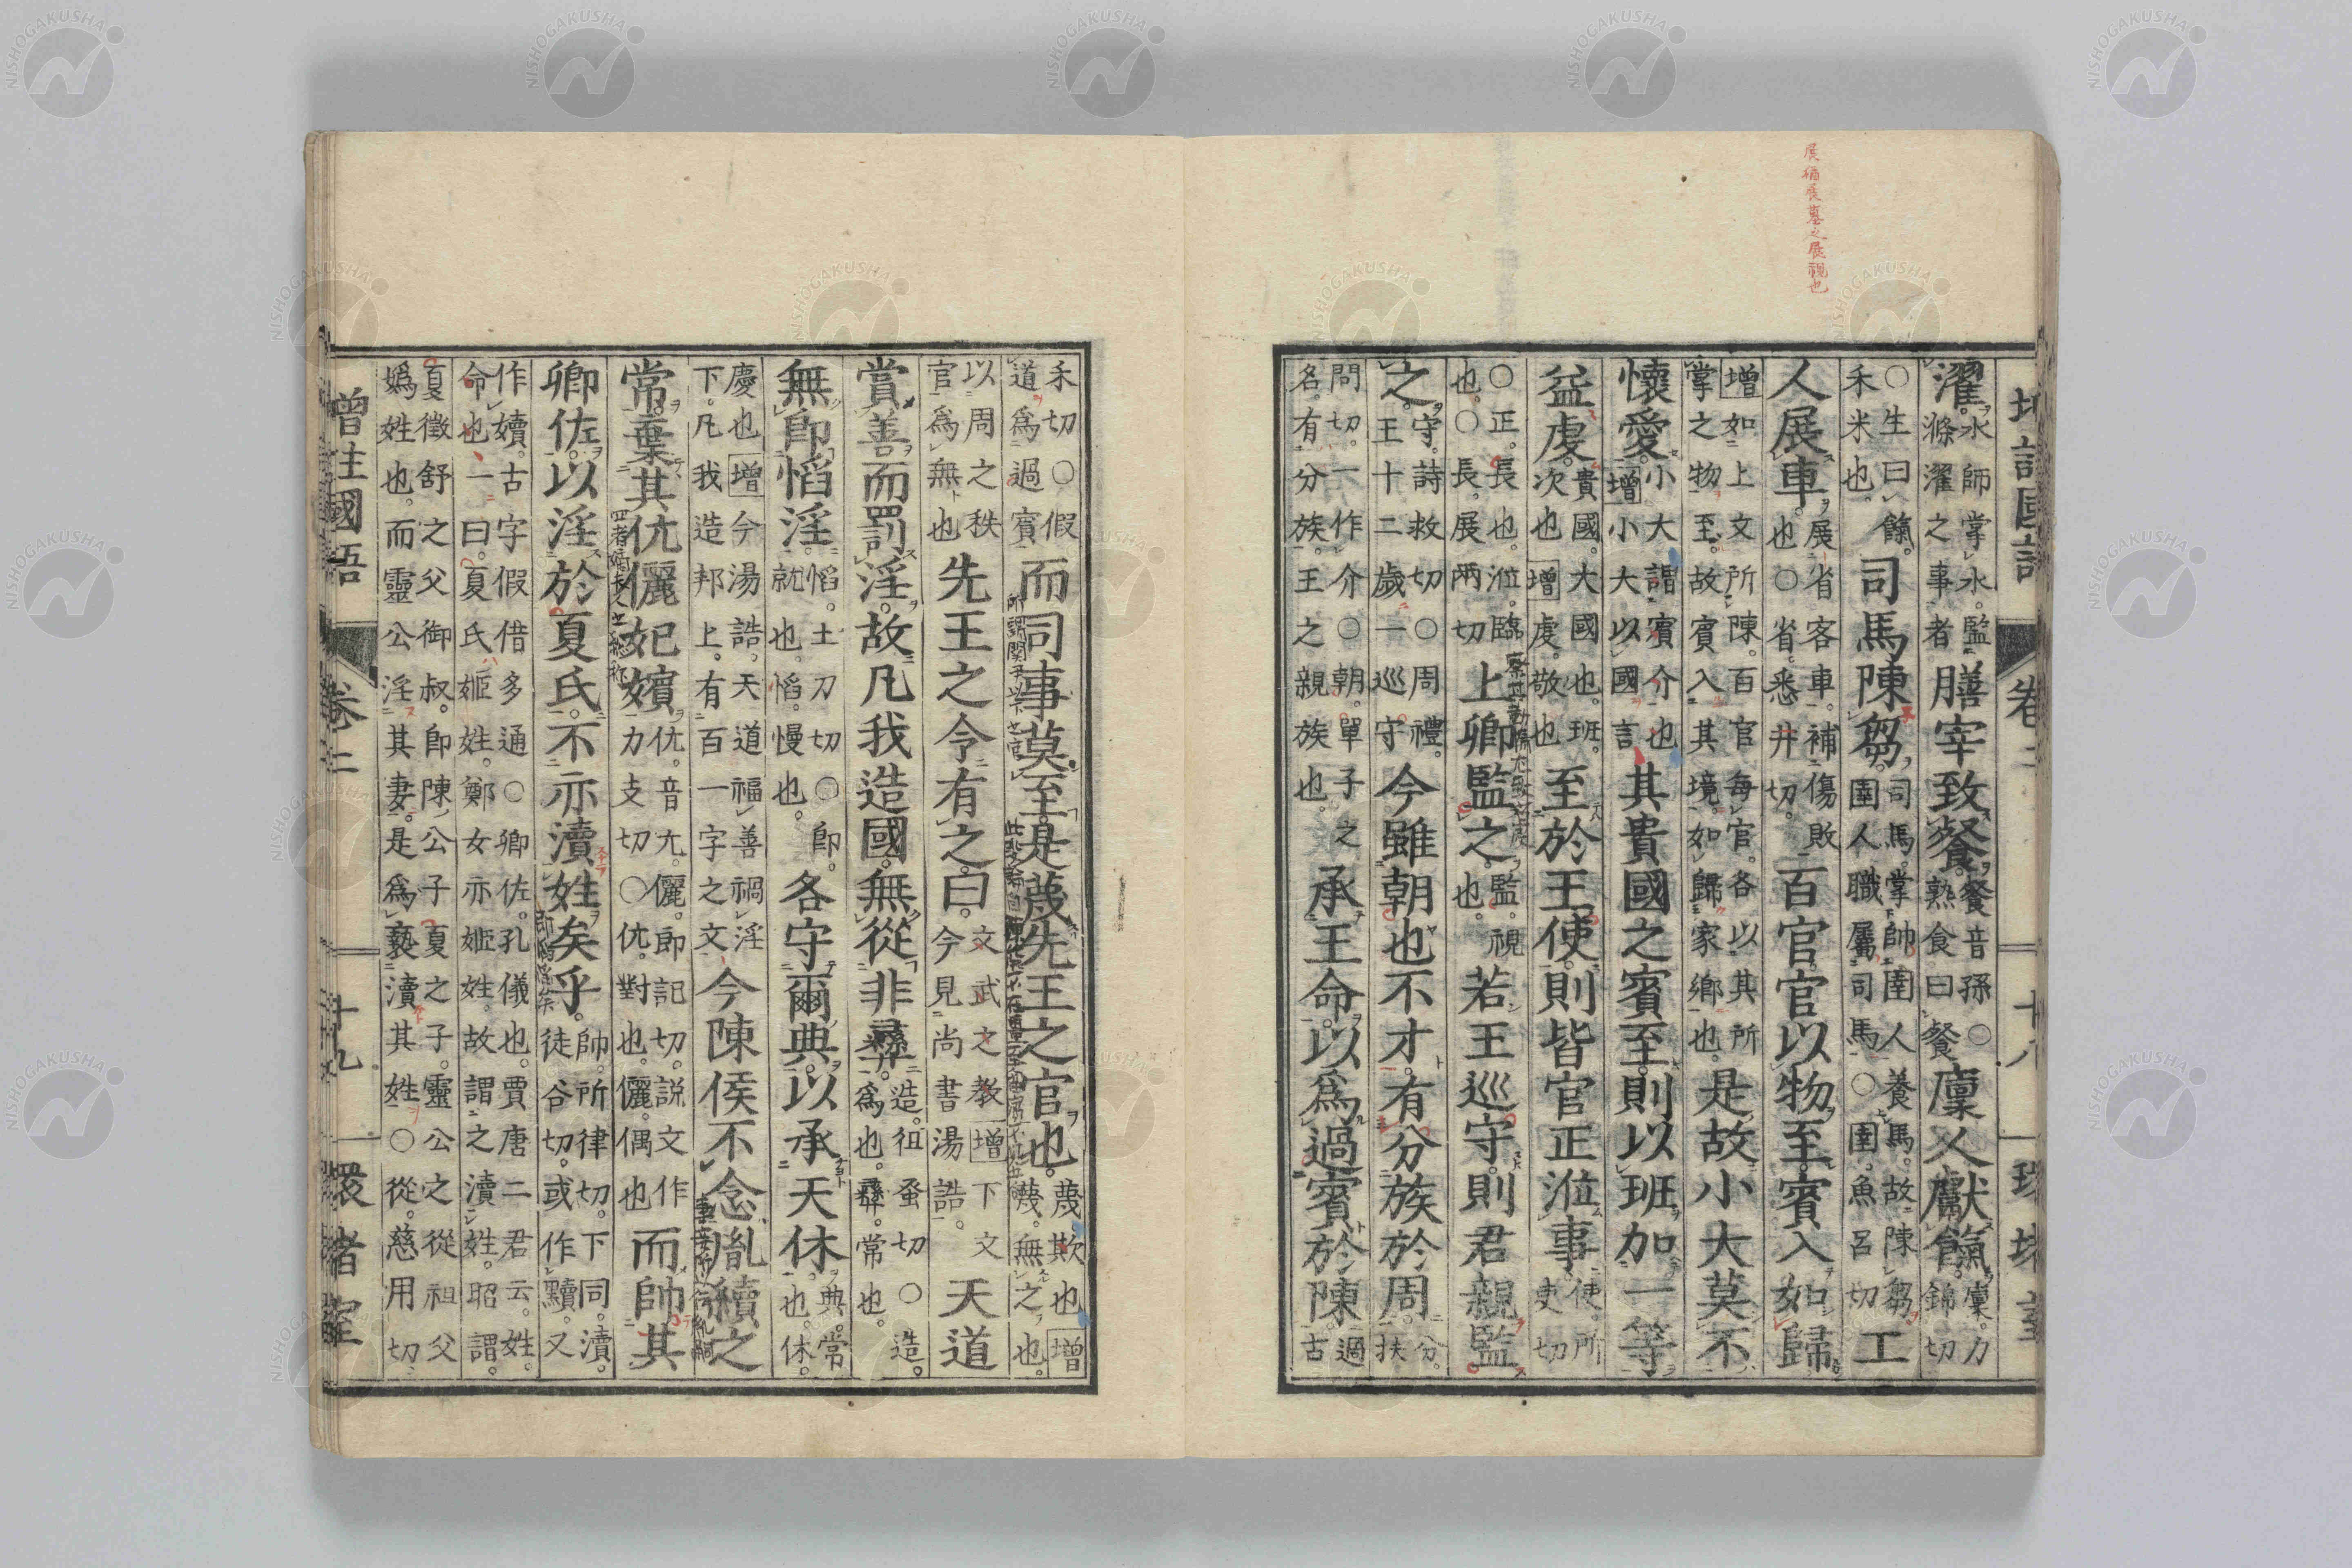 展猶展墓之展視也
濯。水師掌水。監滌濯之事者膳宰致餐。餐音孫○熟食曰餐廩人獻餼。廩力錦切
○生曰餼。禾米也。司馬陳芻。司馬。掌帥圉人養馬。故陳芻圉人職屬司馬○圉。魚呂切工
人展車。展省客車。補傷敗也○省。悉井切。百官官以物至。賓入如歸
增如上文所陳。百官每官。各以其所掌之物至。故賓入其境。如歸家鄉也。是故小大莫不
懷愛。小大謂賓介也增小大以國言其貴國之賓至。則以班加一等
益虔。貴國。大國也。班。次也增虔。敬也至於王使。則皆官正涖事。使。所吏切
○正。長也。涖。臨也。○長。展兩切上卿監之。監。視也。若王巡守。則君親監
之。守。詩救切○周禮。王十二歲一巡守。今雖朝也不才。有分族於周。分。扶
問切。一作介○朝。單子之名。有分族。王之親族也。承王命。以爲過賓於陳過古
卷二
十八
禾切○假道。爲過賓而司事莫至。是蔑先王之官也。蔑欺也增蔑。無之也。
以周之秩官。爲無也先王之令有之。曰。文武之教增下文今見尚書湯誥。天道
賞善而罰淫。故凡我造國。無從非彝。造。徂蚤切○造。爲也。彝。常也。
無卽慆淫。慆。土刀切○卽。就也。慆。慢也。各守爾典。以承天休。典。常也。休。
慶也增今湯誥。天道福善禍淫下。凡我造邦上。有百一字之文今陳侯不念胤續之
常。棄其伉儷妃嬪。伉。音亢。儷。郎記切。說文作力支切○伉。對也。儷。偶也而帥其
卿佐。以淫於夏氏。不亦瀆姓矣乎。帥。所律切。下同。瀆。徒谷切。或作黷。又
作嬻。古字假借多通○卿佐。孔儀也。賈唐二君云。姓。命也。一曰。夏氏姬姓。鄭女亦姬姓。故謂之瀆姓。昭謂。
夏徵舒之父御叔。卽陳公子夏之子。靈公之從祖父嬀姓也。而靈公淫其妻。是爲褻瀆其姓○從。慈用切
增註國語
卷二
十九
環堵室